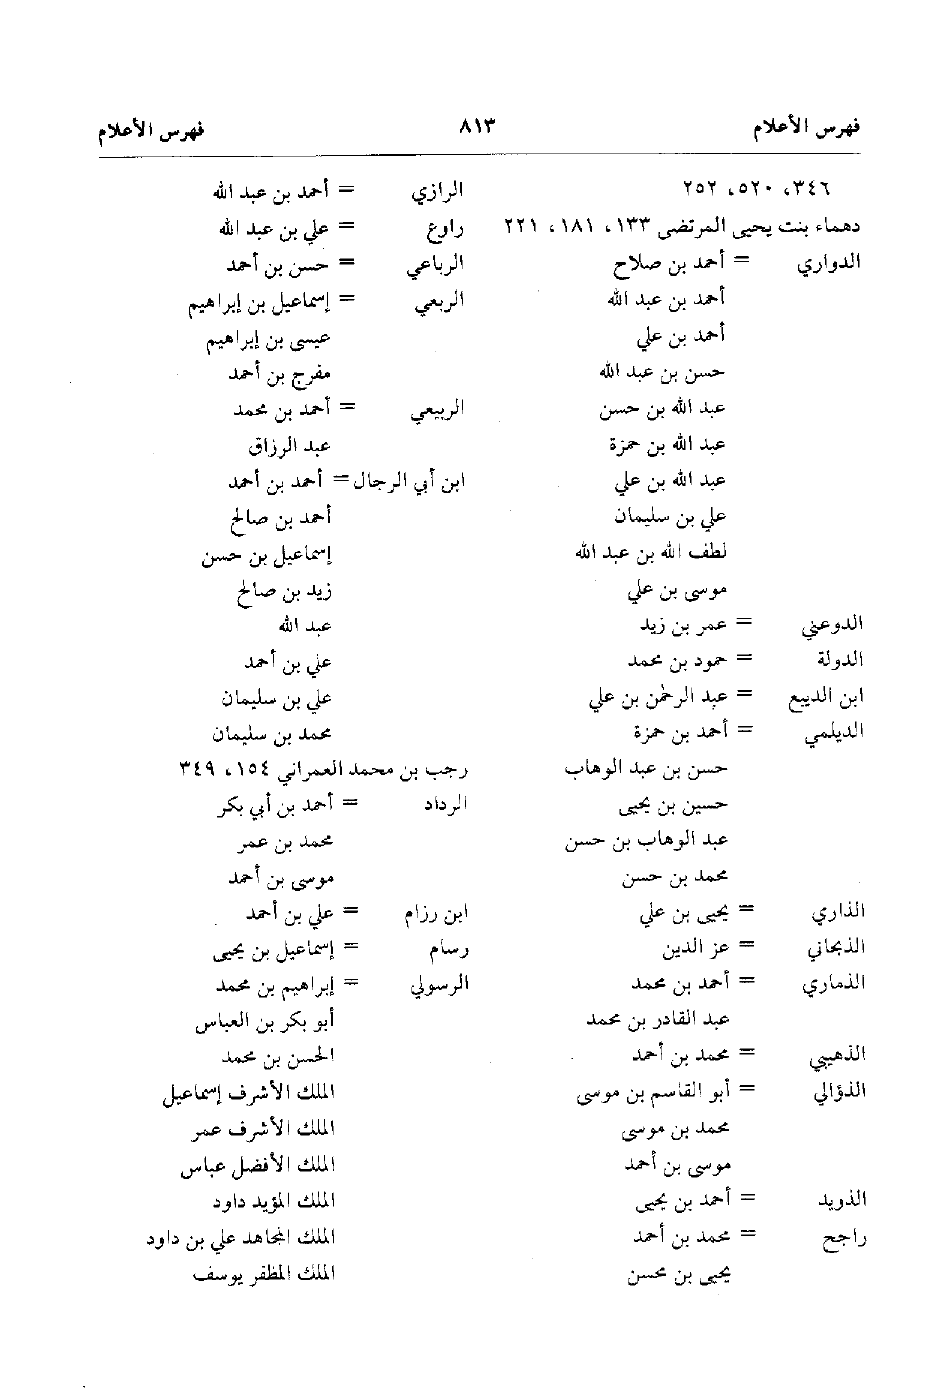 فهرس الأعلام ٨١٣ فهرس الأعلام
٣٤٦، ٥٢٠، ٢٥٢
دهماء بنت يحيى المرتضى ١٣٣، ١٨١، ٢٢١
الدواري = أحمد بن صلاح
أحمد بن عبد الله
أحمد بن علي
حسن بن عبد الله
عبد الله بن حسن
عبد الله بن حمزة
عبد الله بن علي
علي بن سليمان
لطف الله بن عبد الله
موسى بن علي
الدوعني = عمر بن زيد
الدولة = حمود بن محمد
ابن الديبع = عبد الرحمن بن علي
الديلمي = أحمد بن حمزة
حسن بن عبد الوهاب
حسين بن يحيى
عبد الوهاب بن حسن
محمد بن حسن
الذاري = يحيى بن علي
الذبحاني = عز الدين
الذماري = أحمد بن محمد
عبد القادر بن محمد
الذهيبي = محمد بن أحمد
الذؤالي = أبو القاسم بن موسى
محمد بن موسى
موسى بن أحمد
الذويد = أحمد بن يحيى
راجح = محمد بن أحمد
يحيى بن محسن
الرازي = أحمد بن عبد الله
راوع = علي بن عبد الله
الرباعي = حسن بن أحمد
الربعي = إسماعيل بن إبراهيم
عيسى بن إبراهيم
مفرج بن أحمد
الربيعي = أحمد بن محمد
عبد الرزاق
ابن أبي الرجال = أحمد بن أحمد
أحمد بن صالح
إسماعيل بن حسن
زيد بن صالح
عبد الله
علي بن أحمد
علي بن سليمان
محمد بن سليمان
رجب بن محمد العمراني ١٥٤، ٣٤٩
الرداد = أحمد بن أبي بكر
محمد بن عمر
موسى بن أحمد
ابن رزام = علي بن أحمد
رسام = إسماعيل بن يحيى
الرسولي = إبراهيم بن محمد
أبو بكر بن العباس
الحسن بن محمد
الملك الأشرف إسماعيل
الملك الأشرف عمر
الملك الأفضل عباس
الملك المؤيد داود
الملك المجاهد علي بن داود
الملك المظفر يوسف